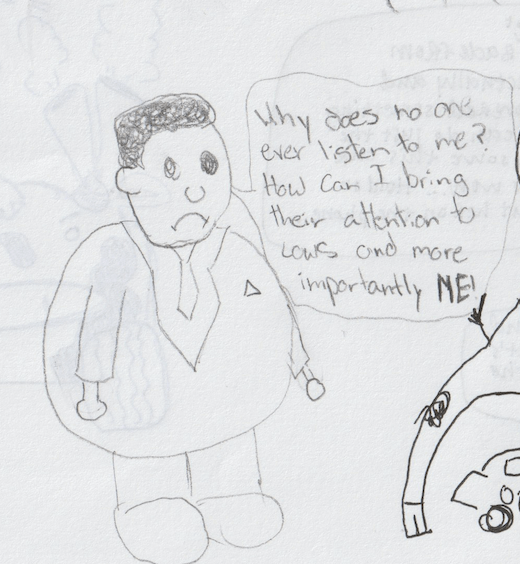 Why does no one
ever listen to me?
How can I bring
their attention to
Laws and more
importantly ME!